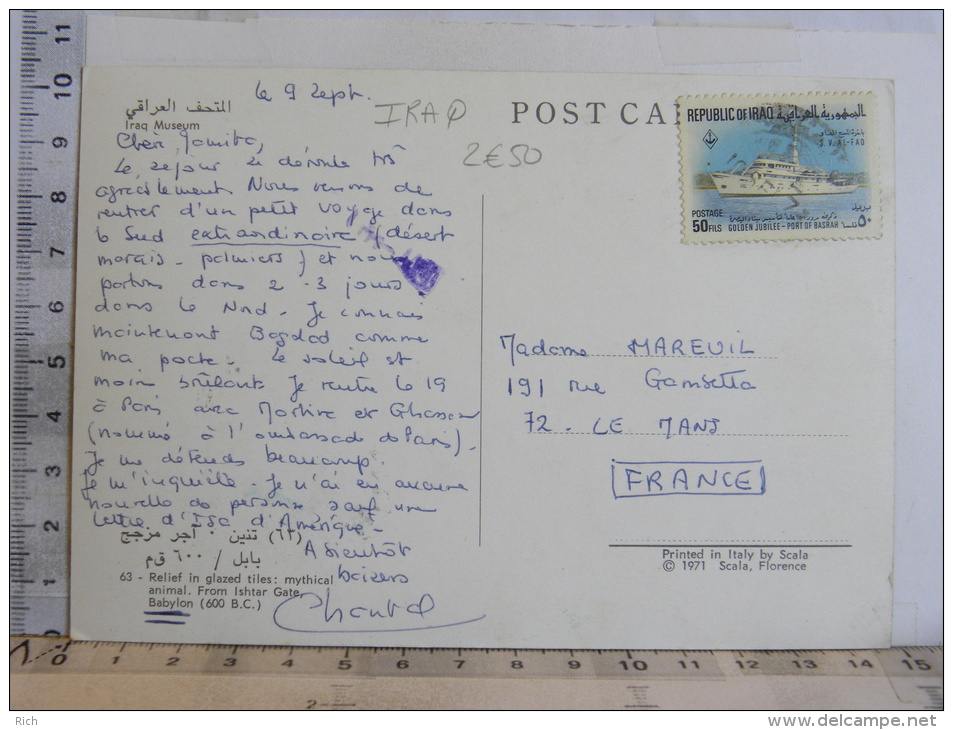 المتحف العراقي
Iraq Museum
le 9 Sept.
IRAQ
2€50
POST CA
REPUBLIC OF IRAQ الجمهورية العراقية
S.V. AL-FAO
POSTAGE
50 FILS
GOLDEN JUBILEE - PORT OF BASRAH
فلسا ٥٠
Le séjour se déroule très
agréablement. Nous venons de
rentrer d'un petit voyage dans
le Sud extraordinaire (désert
marais - palmiers) et nous
partons dans 2-3 jours
dans le Nord - Je connais
maintenant Bagdad comme
ma poche - Le soleil est
moins brûlant Je rentre le 19
à Paris avec Martine et Ghassan
(nommé à l'ambassade de Paris) -
Je me détends beaucoup.
Je m'inquiète - Je n'ai eu aucune
nouvelle de personne sauf une
lettre d'Isa d'Amérique -
A bientôt
baisers
Chantal
(٦٣) تنين ٠ آجر مزجج
بابل / ٦٠٠ ق٠م
63 - Relief in glazed tiles: mythical
animal. From Ishtar Gate,
Babylon (600 B.C.)
Madame MAREUIL
191 rue Gambetta
72 - LE MANS
FRANCE
Printed in Italy by Scala
© 1971 Scala, Florence
11
10
9
8
7
6
5
4
3
2
1
0 1 2 3 4 5 6 7 8 9 10 11 12 13 14 15
Rich
http://www.delcampe.net